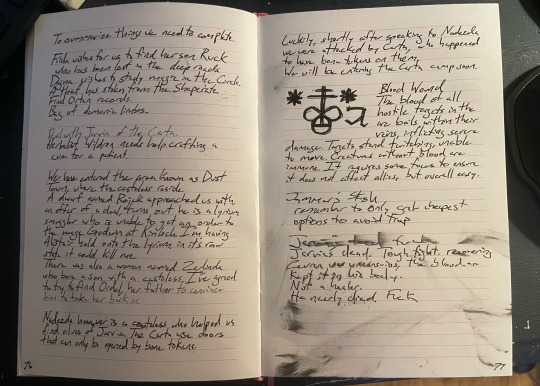 To summarize things we need to complete.
Filda wishes for us to find her son Ruck
who has been lost in the deep roads.
Dagna wishes to study magic in the Circle.
A thief, has stolen from the Shaperate
Find Ortan records.
Bag of demonic limbs.
Deal with Jarvia of the Carta.
Herbalist Widron needs help crafting a
cure for a patient.
We have entered the area known as Dust
Town, where the casteless reside.
A dwarf named Rogek approached us with
an offer of a deal, turns out he is a lyrium
smuggler who is unable to get an order to
the mage Godwin at Kinloch. I'm having
Alistair hold onto the lyrium in its raw
state it could kill me.
There was also a woman named Zerlinda
who bore a son with a casteless, I've agreed
to try to find Ordel, her father to convince
him to take her back in.
Nadezda however is a casteless, who helped us
find clues of Jarvia. The Carta use doors
that can only be opened by bone tokens.
76
Luckily, shortly after speaking to Nadezda
we were attacked by Carta, who happened
to have bone tokens on them.
We will be entering the Carta camp soon.
Blood Wound
The blood of all
hostile targets in the
area boils within their
veins, inflicting severe
damage. Targets stand twitching, unable
to move. Creatures without blood are
immune. It requires some focus to ensure
it does not affect allies, but overall easy.
remember to only get cheapest
options to avoid trap
Jarvia's dead. Tough fight.
Zevran was unconscious, the blood
Kept it in his body.
Not a healer.
He nearly died. Fuck
77